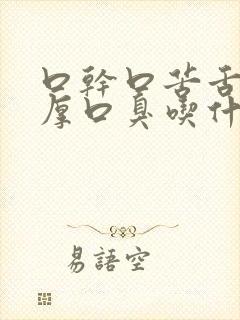 口幹口苦舌
厚口臭喫什
易語空